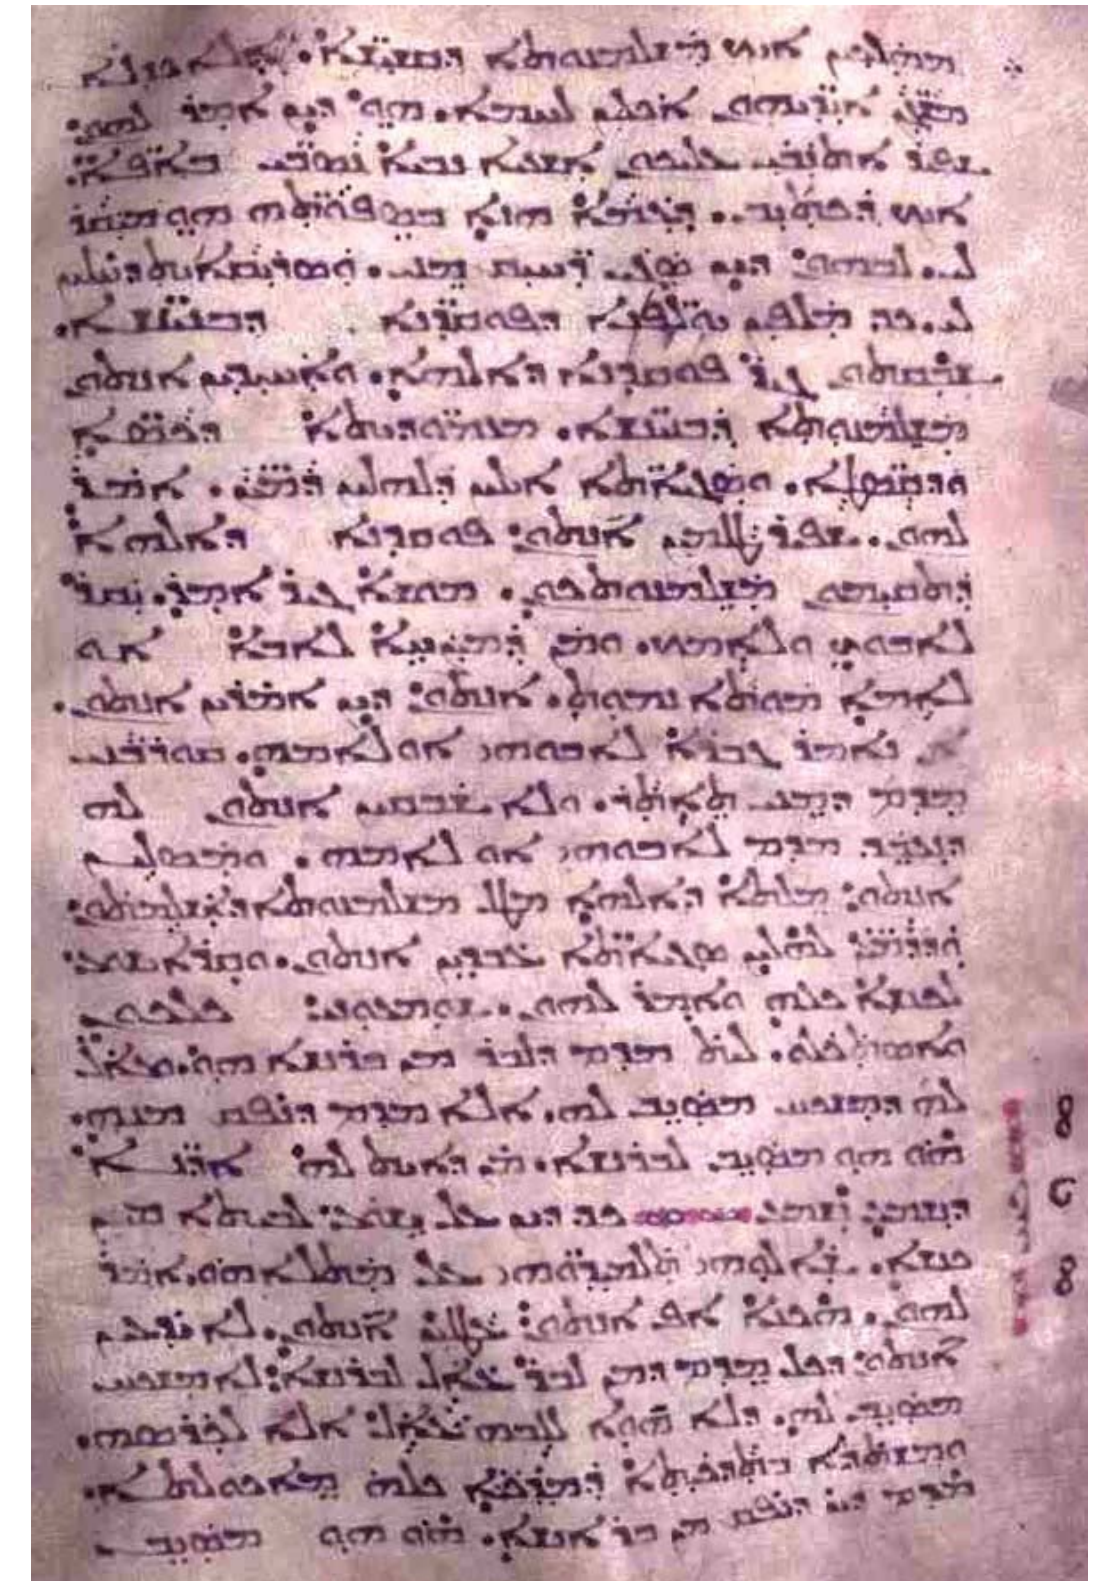 ܡܗܠܟܝܢ ܐܝܟ ܡܫܠܡܢܘܬܐ ܕܩܫܝܫܐ. ܐܠܐ ܟܕ ܠܐ
ܡܫܓܢ ܐܝܕܝܗܘܢ ܐܟܠܝܢ ܠܚܡܐ. ܗܘ ܕܝܢ ܐܡܪ ܠܗܘܢ
ܫܦܝܪ ܐܬܢܒܝ ܥܠܝܟܘܢ ܐܫܥܝܐ ܢܒܝܐ ܢܣܒܝ ܒܐܦܐ.
ܐܝܟ ܕܟܬܝܒ. ܕܥܡܐ ܗܢܐ ܒܣܦܘܬܗ ܗܘ ܡܝܩܪ
ܠܝ. ܠܒܗܘܢ ܕܝܢ ܣܓܝ ܪܚܝܩ ܡܢܝ. ܘܣܪܝܩܐܝܬ ܕܚܠܝܢ
ܠܝ. ܟܕ ܡܠܦܝܢ ܝܘܠܦܢܐ ܕܦܘܩܕܢܐ ܕܒܢܝܢܫܐ.
ܫܒܩܬܘܢ ܓܝܪ ܦܘܩܕܢܐ ܕܐܠܗܐ. ܘܐܚܝܕܝܢ ܐܢܬܘܢ
ܡܫܠܡܢܘܬܐ ܕܒܢܝܢܫܐ. ܡܥܡܘܕܝܬܐ ܕܟܣܐ
ܘܕܩܣܛܐ. ܘܣܓܝܐܬܐ ܐܝܠܝܢ ܕܠܗܠܝܢ ܕܡܝܢ. ܐܡܪ
ܠܗܘܢ. ܫܦܝܪ ܛܠܡܝܢ ܐܢܬܘܢ ܦܘܩܕܢܐ ܕܐܠܗܐ
ܕܬܩܝܡܘܢ ܡܫܠܡܢܘܬܟܘܢ. ܡܘܫܐ ܓܝܪ ܐܡܪ. ܝܩܪ
ܠܐܒܘܟ ܘܠܐܡܟ. ܘܡܢ ܕܡܨܚܐ ܠܐܒܐ ܐܘ
ܠܐܡܐ ܡܘܬܐ ܢܡܘܬ. ܐܢܬܘܢ ܕܝܢ ܐܡܪܝܢ ܐܢܬܘܢ.
ܐܢ ܢܐܡܪ ܓܒܪܐ ܠܐܒܘܗܝ ܐܘ ܠܐܡܗ. ܩܘܪܒܢܝ
ܡܕܡ ܕܡܢܝ ܬܐܬܪ. ܘܠܐ ܫܒܩܝܢ ܐܢܬܘܢ ܠܗ
ܕܢܥܒܕ ܡܕܡ ܠܐܒܘܗܝ ܐܘ ܠܐܡܗ. ܘܡܣܠܝܢ
ܐܢܬܘܢ ܡܠܬܐ ܕܐܠܗܐ ܡܛܠ ܡܫܠܡܢܘܬܐ ܕܐܫܠܡܬܘܢ
ܘܕܕܡܝܢ ܠܗܠܝܢ ܣܓܝܐܬܐ ܥܒܕܝܢ ܐܢܬܘܢ. ܘܩܪܐ ܝܫܘܥ
ܠܟܢܫܐ ܟܠܗ ܘܐܡܪ ܠܗܘܢ. ܫܘܡܥܘܢܝ ܟܠܟܘܢ
ܘܐܣܬܟܠܘ. ܠܝܬ ܡܕܡ ܕܠܒܪ ܡܢ ܒܪܢܫܐ ܗܘ. ܘܥܐܠ
ܠܗ ܕܡܫܟܚ ܡܣܝܒ ܠܗ. ܐܠܐ ܡܕܡ ܕܢܦܩ ܡܢܗ.
ܗܘ ܗܘ ܡܣܝܒ ܠܒܪܢܫܐ. ܡܢ ܕܐܝܬ ܠܗ ܐܕܢܐ
ܕܢܫܡܥ ܢܫܡܥ. ܟܕ ܕܝܢ ܥܠ ܝܫܘܥ ܠܒܝܬܐ ܡܢ
ܟܢܫܐ. ܫܐܠܘܗܝ ܬܠܡܝܕܘܗܝ ܥܠ ܡܬܠܐ ܗܘ. ܐܡܪ
ܠܗܘܢ. ܗܟܢܐ ܐܦ ܐܢܬܘܢ ܥܛܠܝܢ ܐܢܬܘܢ. ܠܐ ܝܕܥܝܢ
ܐܢܬܘܢ ܕܟܠ ܡܕܡ ܕܡܢ ܠܒܪ ܥܐܠ ܠܒܪܢܫܐ ܠܐ ܡܫܟܚ
ܡܣܝܒ ܠܗ. ܕܠܐ ܗܘܐ ܠܠܒܗ ܥܐܠ ܐܠܐ ܠܟܪܣܗ.
ܘܡܫܬܕܐ ܒܬܕܟܝܬܐ ܕܡܕܟܝܐ ܟܠܗ ܡܐܟܘܠܬܐ.
ܡܕܡ ܕܝܢ ܕܢܦܩ ܡܢ ܒܪ ܐܢܫܐ. ܗܘ ܗܘ ܡܣܝܒ